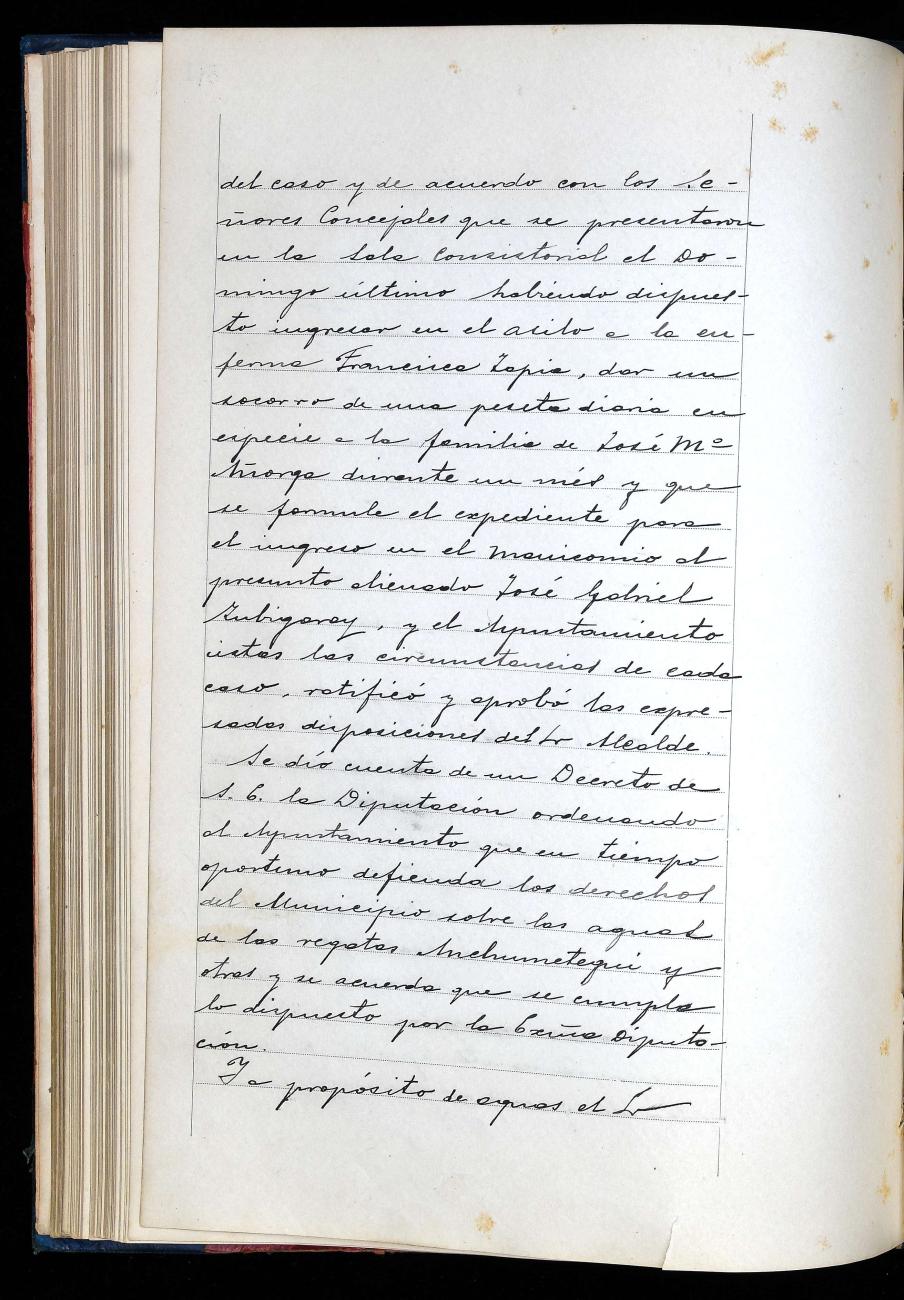 del caso y de acuerdo con los Se-
ñores Concejales que se presentaron
en la Sala Consistorial el Do-
mingo último habiendo dispues-
to ingresar en el asilo a la en-
ferma Francisca Tapia, dar un
socorro de una peseta diaria en
especie a la familia de José Mª
Añorga durante un més y que
se formule el expediente para
el ingreso en el Manicomio al
presunto alienado José Gabriel
Zubigaray, y el Ayuntamiento
vistas las circunstancias de cada
caso, ratificó y aprobó las expre-
sadas disposiciones del Sr Alcalde.
Se dió cuenta de un Decreto de
S. E. la Diputación ordenando
al Ayuntamiento que en tiempo
oportuno defienda los derechos
del Municipio sobre las aguas
de las regatas Anchumetegui y
otras y se acuerda que se cumpla
lo dispuesto por la Exma Diputa-
ción.
Y a propósito de aguas el Sr